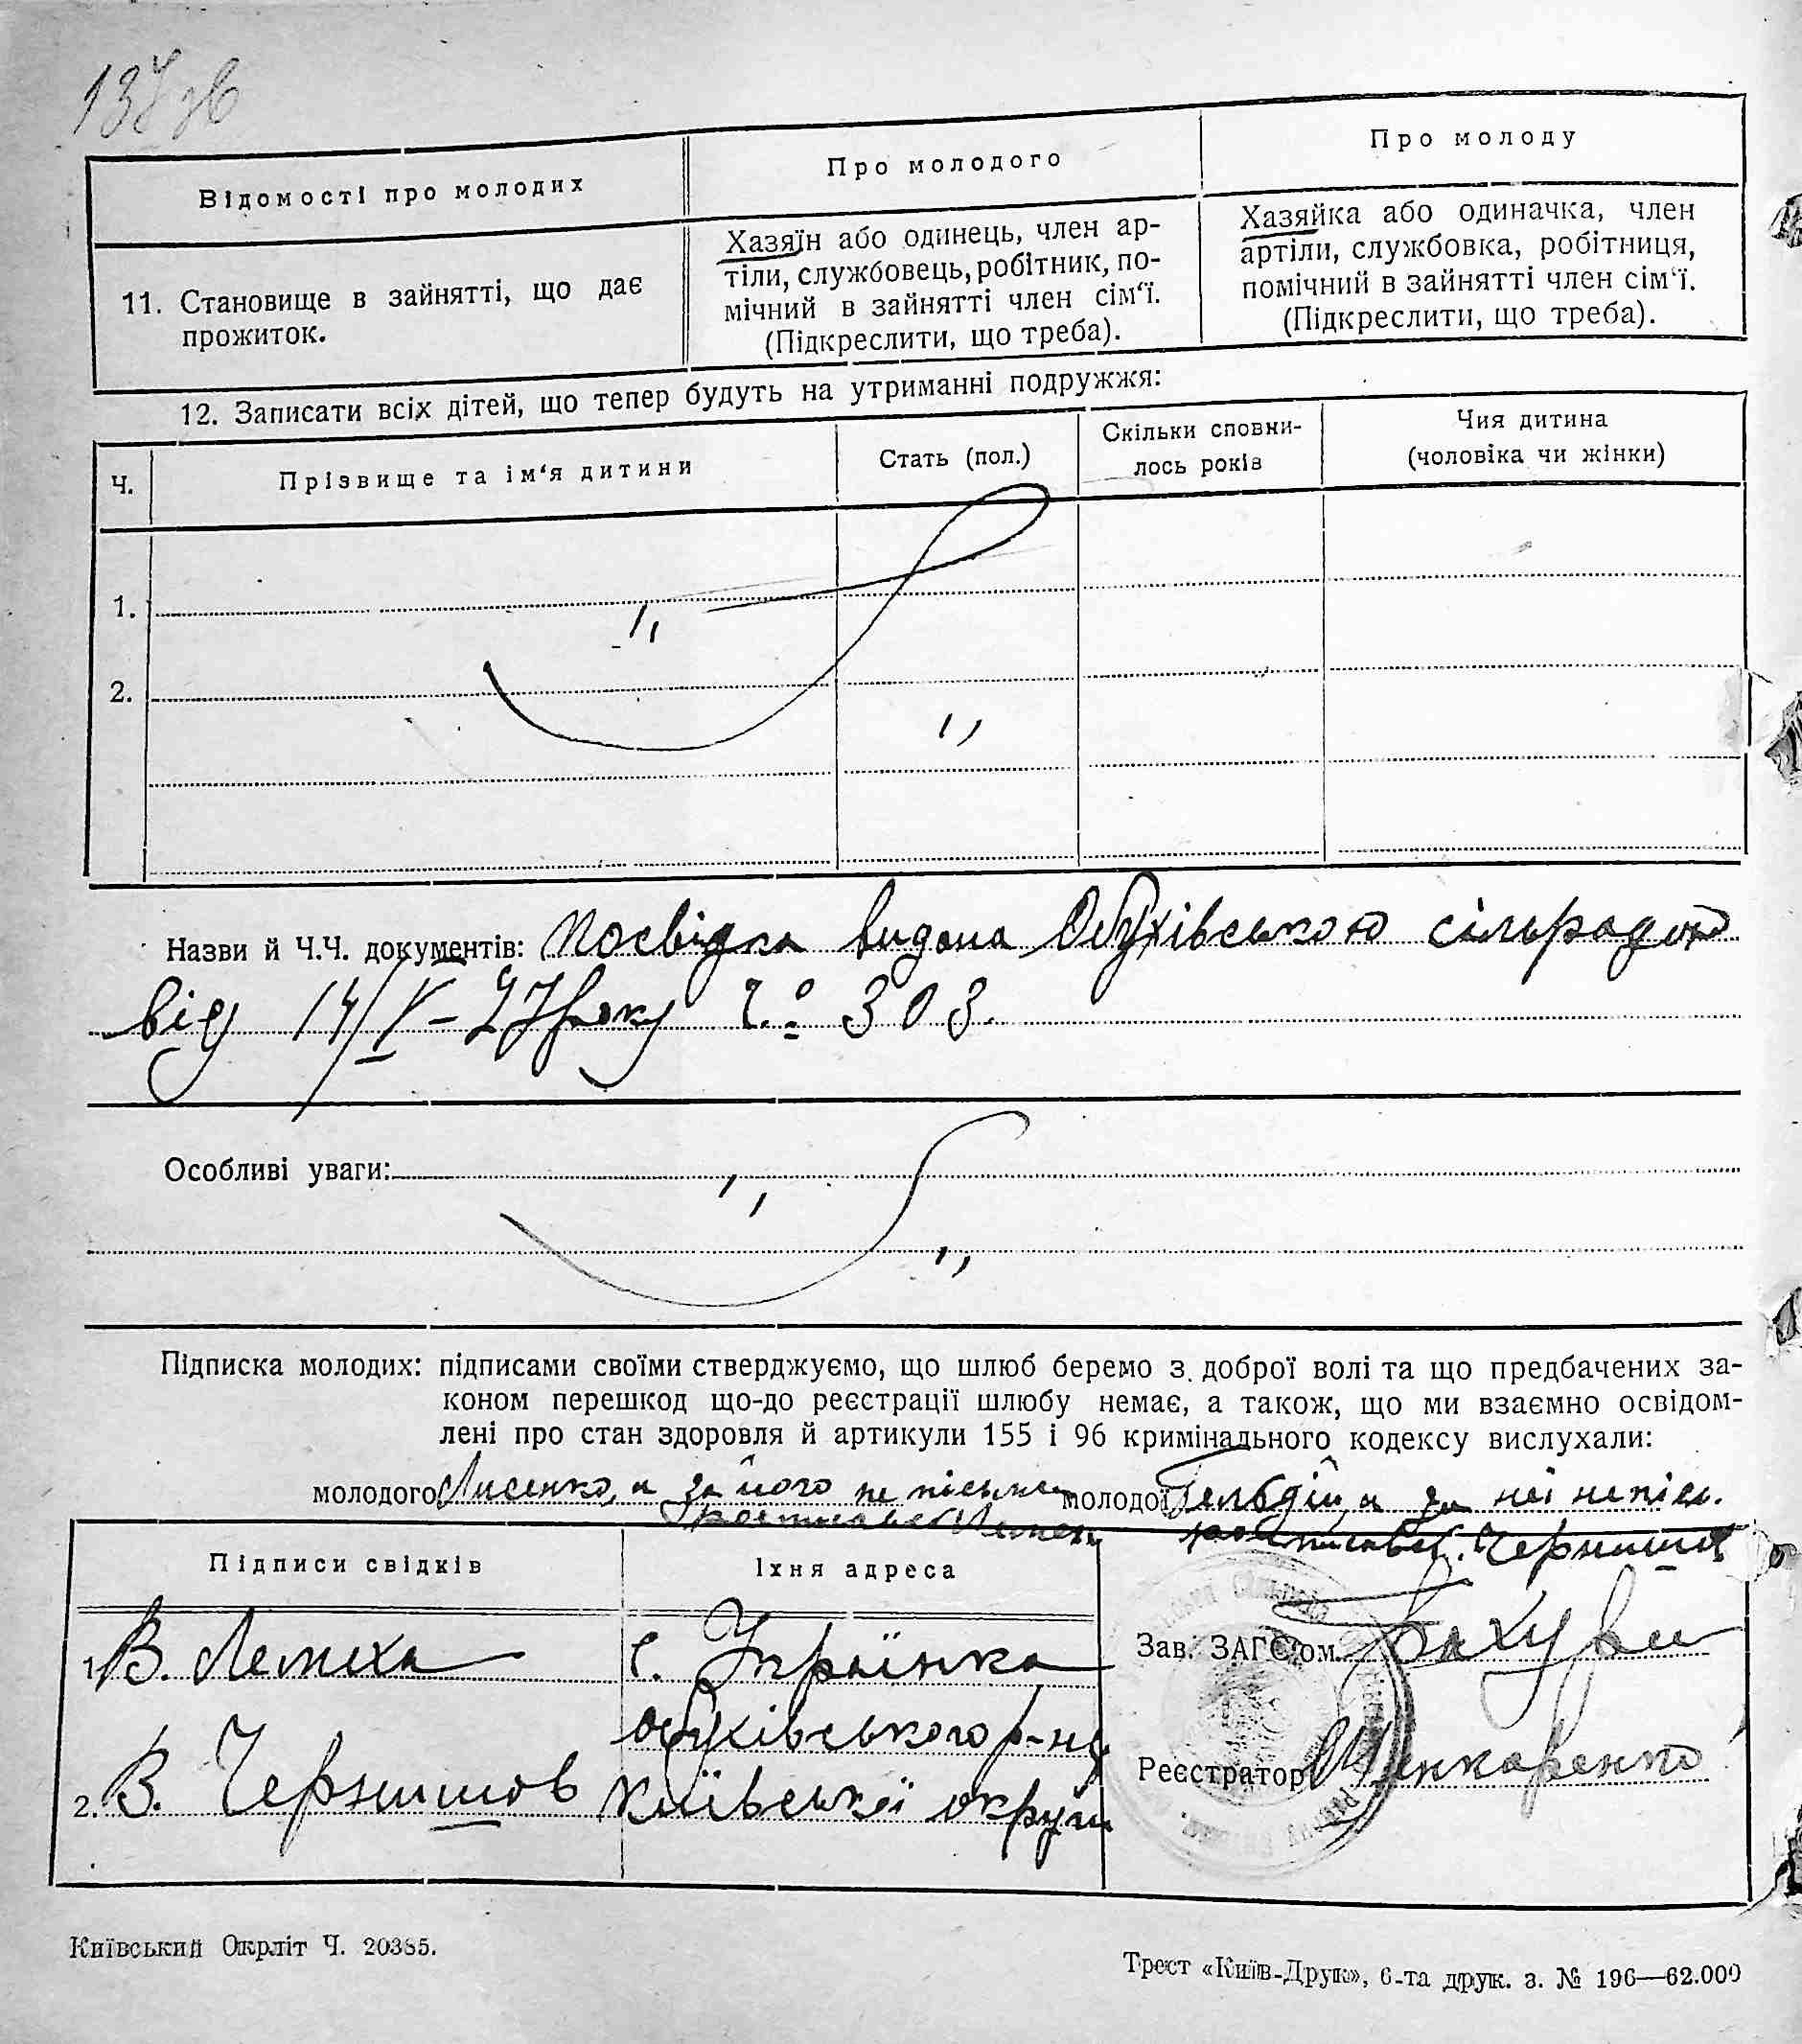 137 зв
Відомості про молодих
Про молодого
Про молоду
11. Становище в зайнятті, що дає
прожиток.
Хазяїн або одинець, член ар-
тіли, службовець, робітник, по-
мічний в зайнятті член сім‘ї.
(Підкреслити, що треба).
Хазяйка або одиначка, член
артіли, службовка, робітниця,
помічний в зайнятті член сім‘ї.
(Підкреслити, що треба).
12. Записати всіх дітей, що тепер будуть на утриманні подружжя:
Ч.
Прізвище та ім‘я дитини
Стать (пол.)
Скільки сповни-
лось років
Чия дитина
(чоловіка чи жінки)
1.
2.
Назви й Ч.Ч. документів: Посвідка видана Обухівською сільрадою
від 14/V-27 року Ч. 303.
Особливі уваги:
Підписка молодих: підписами своїми стверджуємо, що шлюб беремо з доброї волі та що предбачених за-
коном перешкод що-до реєстрації шлюбу немає, а також, що ми взаємно освідом-
лені про стан здоровля й артикули 155 і 96 кримінального кодексу вислухали:
молодого Лисенко, а за його не письмен молодої а за неї непісм.
розписавсь Чернишов
Підписи свідків
Їхня адреса
1. В. Лемеха
с. Українка
Обухівського р-ну
2. В. Чернишов
Київської округи
Зав. ЗАГС‘ом
Реєстратор Шинкаренко
Київський Окрліт Ч. 20385.
Трест «Київ-Друк», 6-та друк. з. № 196—62.000